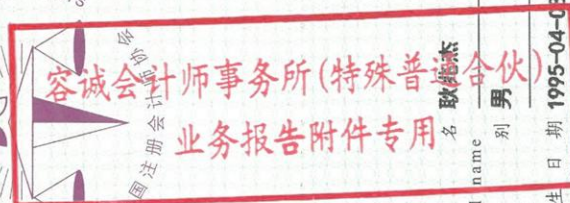 容诚会计师事务所(特殊普通合伙)
业务报告附件专用
国注册会计师协会
名 耿兆杰
name
别 男
生 日 期 1995-04-03